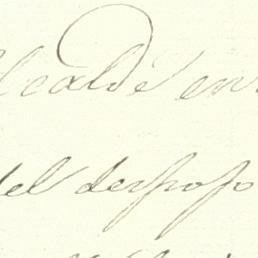 Alcalde en
del despropo